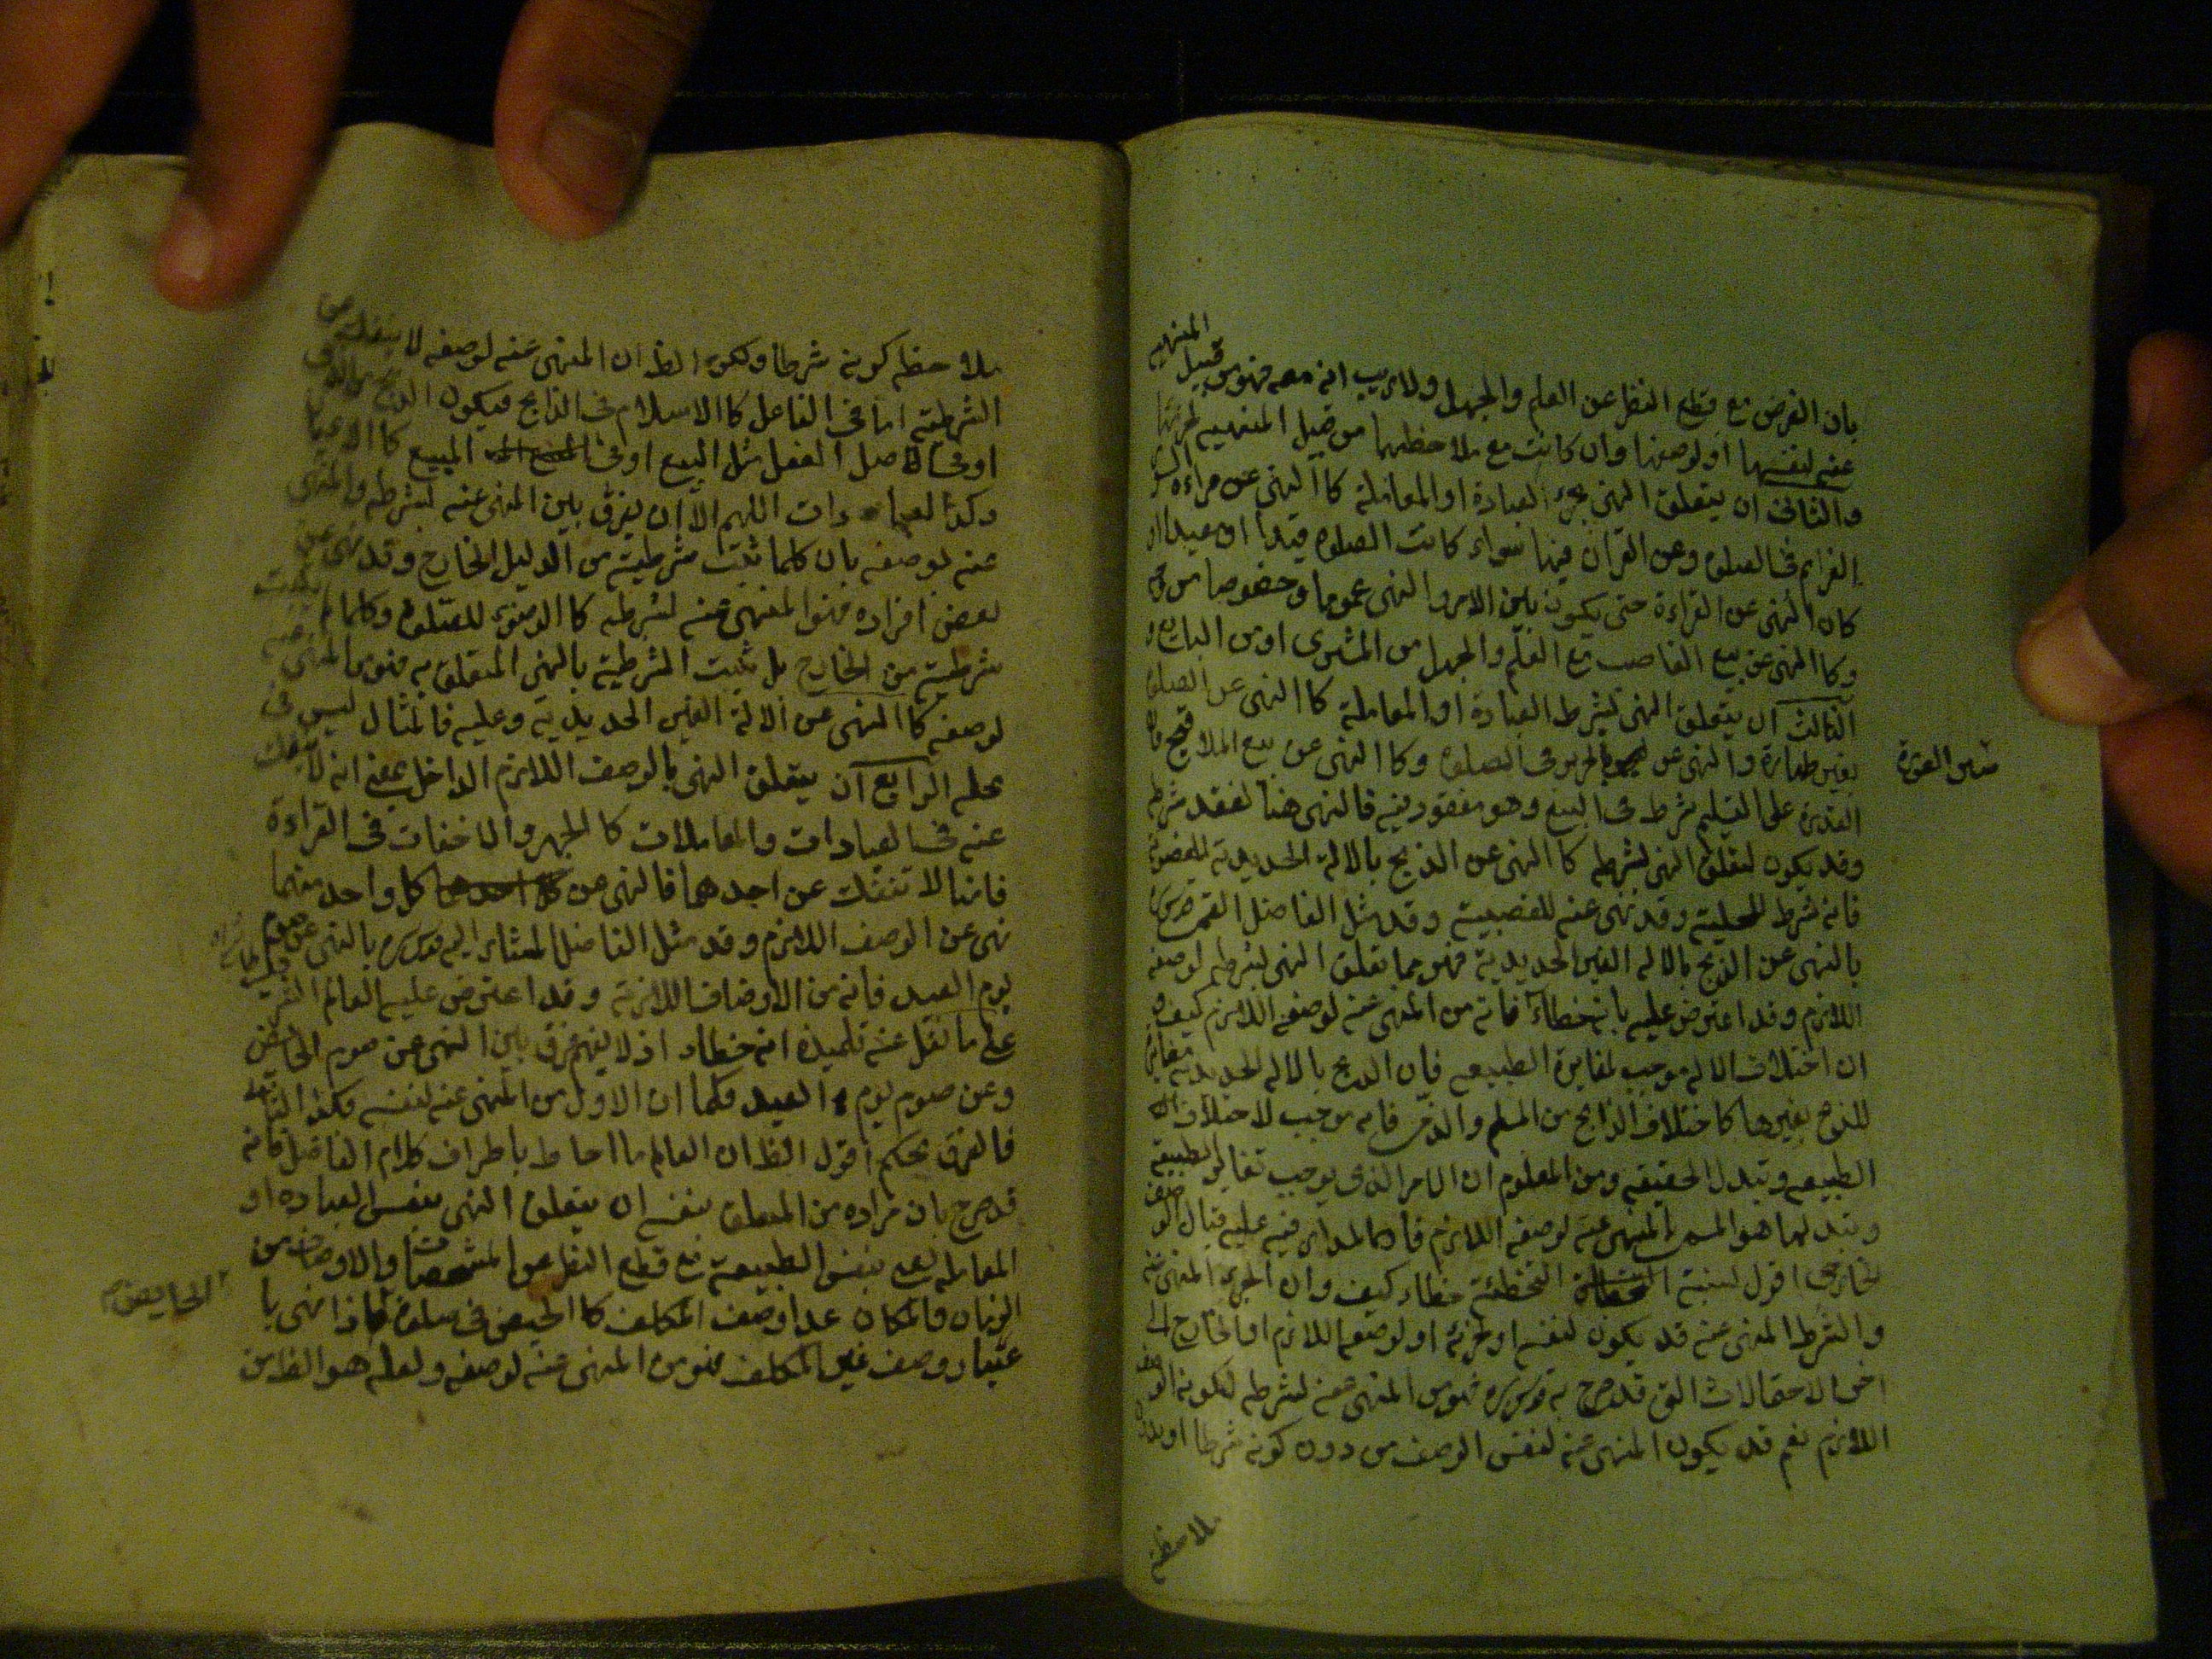 بان الفرض مع قطع النظر عن العلم والجهل ولا ريب انه معه فهو من قبيل المنهى
عنه لنفسها او لوصفها وان كانت مع ملاحظتهما من قبيل المنهى لجزئها
والثانى ان يتعلق النهى بجزء العبادة او المعاملة كالنهى عن قراءة
العزائم فى الصلوة وعن القران فيها سواء كانت الصلوة قيدا او
كان النهى عن القراءة حتى يكون بين الامر والنهى عموما وخصوصا من وجه
وكالنهى عن بيع الغاصب مع العلم والجهل من المشترى او من البايع
الثالث ان يتعلق النهى لشرط العبادة او المعاملة كالنهى عن الصلوة
بغير طهارة والنهى عن الحرير فى الصلوة وكالنهى عن بيع الملاقيح فان
ستر العورة
القدرة على التسليم شرط فى البيع وهو مفقود فيه فالنهى هنا لفقد شرطه
وقد يكون لتعلق النهى لشرطه كالنهى عن الذبح بالالة الحديدية المغصوبة
فانه شرط للحلية وقد نهى عنه للغصبية وقد مثل الفاضل القمى قدس سره
بالنهى عن الذبح بالاله الغير الحديدية فهو مما تعلق النهى لشرطه لوصفه
اللازم وقد اعترض عليه بانه خطاء فانه من المنهى عنه لوصفه اللازم كيف و
ان اختلاف الاله موجب لمغايرة الطبيعه فان الذبح بالاله الحديدية مغاير
للذبح بغيرها كاختلاف الذابح من المسلم والذمى فانه موجب لاختلاف
الطبيعه وتبدل الحقيقه ومن المعلوم ان الامر الذى يوجب تغاير الطبيعه
وتبدلها هو المسمى بالمنهى عنه لوصفه اللازم فانها المدار فيه عليه قبال الوصف
الخارجى اقول نسبة التخطئة خطاء كيف وان الجزء المنهى عنه
والشرط المنهى عنه قد يكون لنفسه او لجزئه او لوصفه اللازم او الخارج الى
اخر الاحتمالات التى قد صرح به قدس سره فهو من المنهى عنه لشرطه لكونه الوصف
اللازم نعم قد يكون المنهى عنه لنفس الوصف من دون كونه شرطا او بدون
ملاحظه
بلاحظه كونه شرطا وككونه الظ ان المنهى عنه لوصفه لا ينفك عن
الشرطية اما فى الفاعل كالاسلام فى الذابح فيكون
او فى اصل الفعل مثل البيع او فى المبيع
وكذا العبادات اللهم الا ان يفرق بين المنهى عنه لشرطه والمنهى
عنه لوصفه بان كلما ثبت شرطيته من الدليل الخارج وقد نهى عن
بعض افراده فهو المنهى عنه لشرطه كالوضوء للصلوة وكلما لم يثبت
شرطيته من الخارج بل ثبت الشرطية بالنهى المتعلق به فهو من المنهى عنه
لوصفه كالنهى عن الالة الغير الحديدية وعليه فالمثال ليس فى
محله الرابع ان يتعلق النهى بالوصف اللازم الداخل بمعنى انه لا ينفك
عنه فى العبادات والمعاملات كالجهر والاخفات فى القراءة
فانها لا تنفك عن احدهما فالنهى عن كل واحد منهما
نهى عن الوصف اللازم وقد مثل الفاضل المشار اليه قدس سره بالنهى عن صوم
يوم العيد فانه من الاوصاف اللازمة وقد اعترض عليه العالم
على ما نقل عنه تلميذه انه خطاء اذ لا يفهم فرق بين النهى عن صوم الحايض
وعن صوم يوم العيد فكما ان الاول من المنهى عنه لنفسه فكذا الثانى
فالفرق تحكم اقول الظ ان العالم ما احاط باطراف كلام الفاضل فانه
قد صرح بان مراده من المتعلق بنفسه ان يتعلق النهى بنفس العباده او
المعامله يعنى بنفس الطبيعة مع قطع النظر عن المشخصات والاوصاف من
الزمان والمكان عدا وصف المكلف كالحيض فى صلوة فاذا نهى با
الحايض
عتبار وصف غير المكلف فهو من المنهى عنه لوصفه ولعله هو الظ من